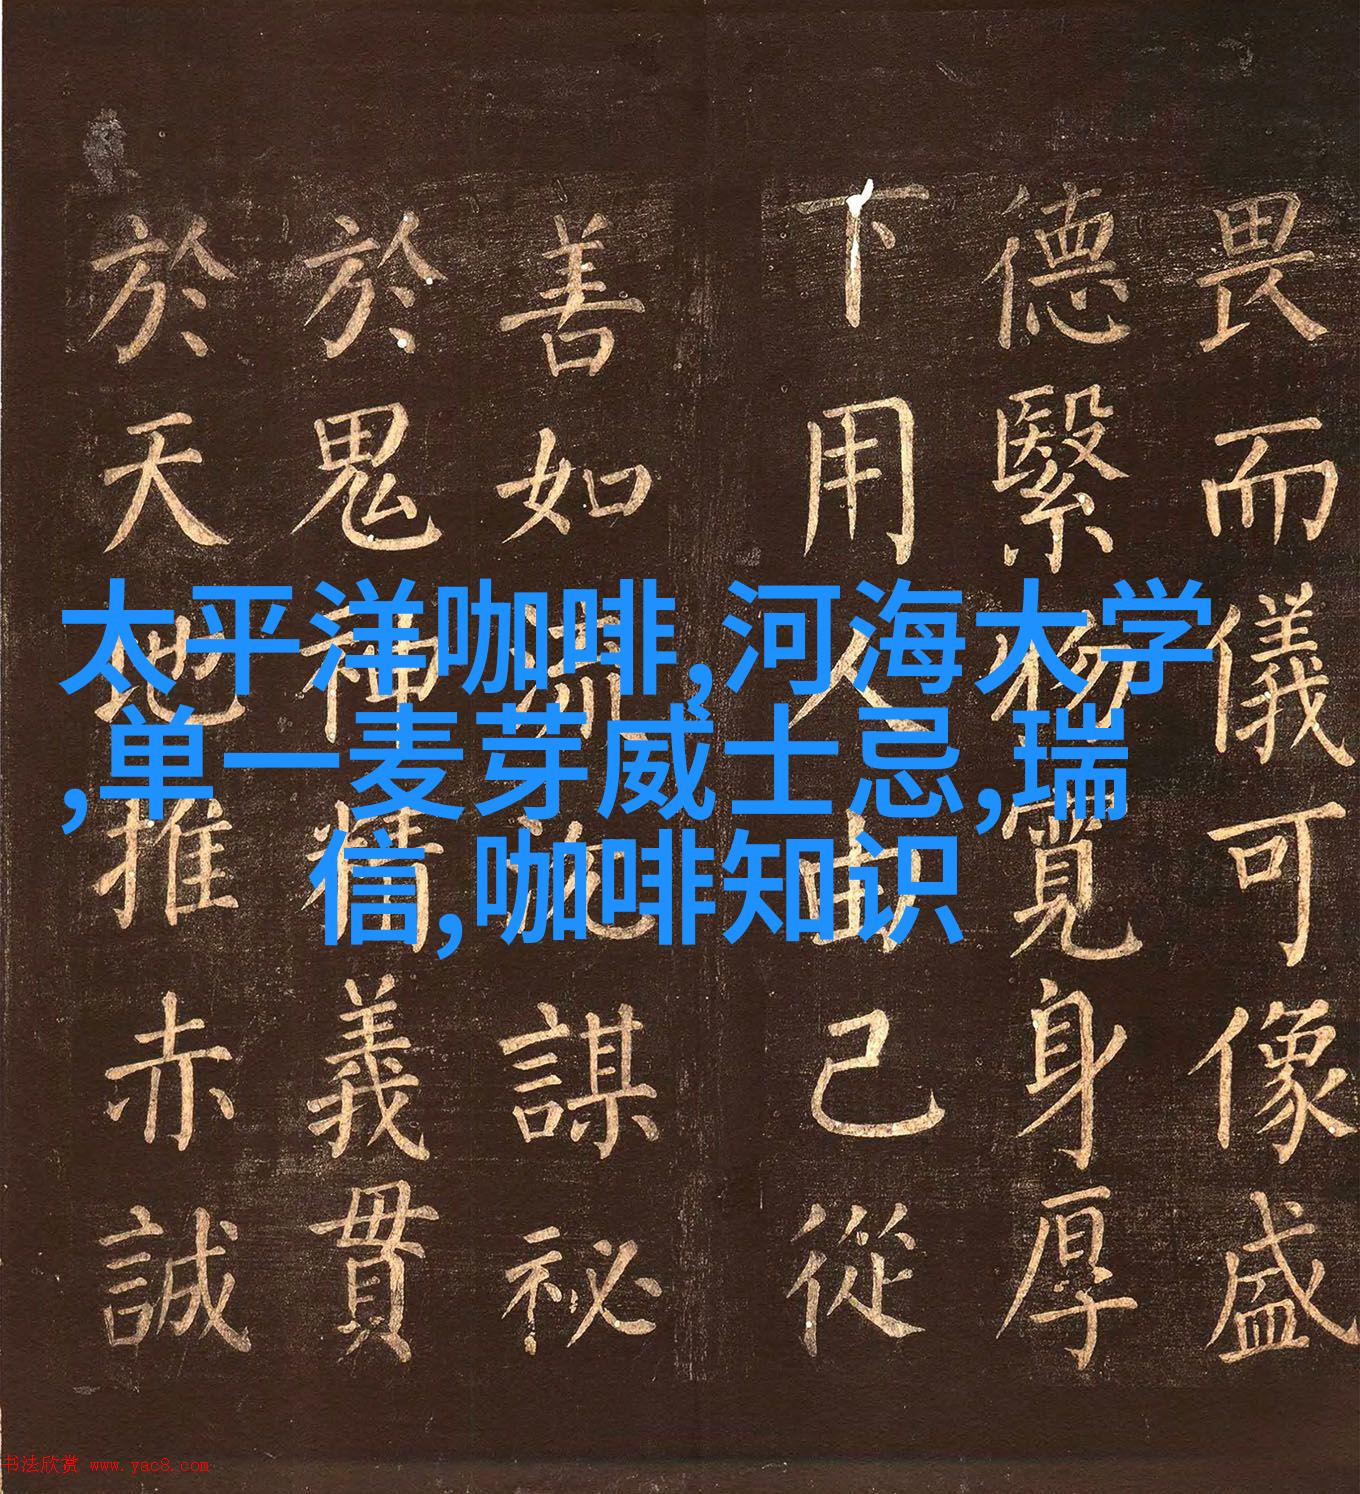 畏而儀可像盛
德繄物寬身厚
下用人由己從
善如流謀祕
於鬼神精義貫
於天地推赤誠
太平洋咖啡,河海大学
,单一麦芽威士忌,瑞
信,咖啡知识
书法欣赏 www.yac8.com